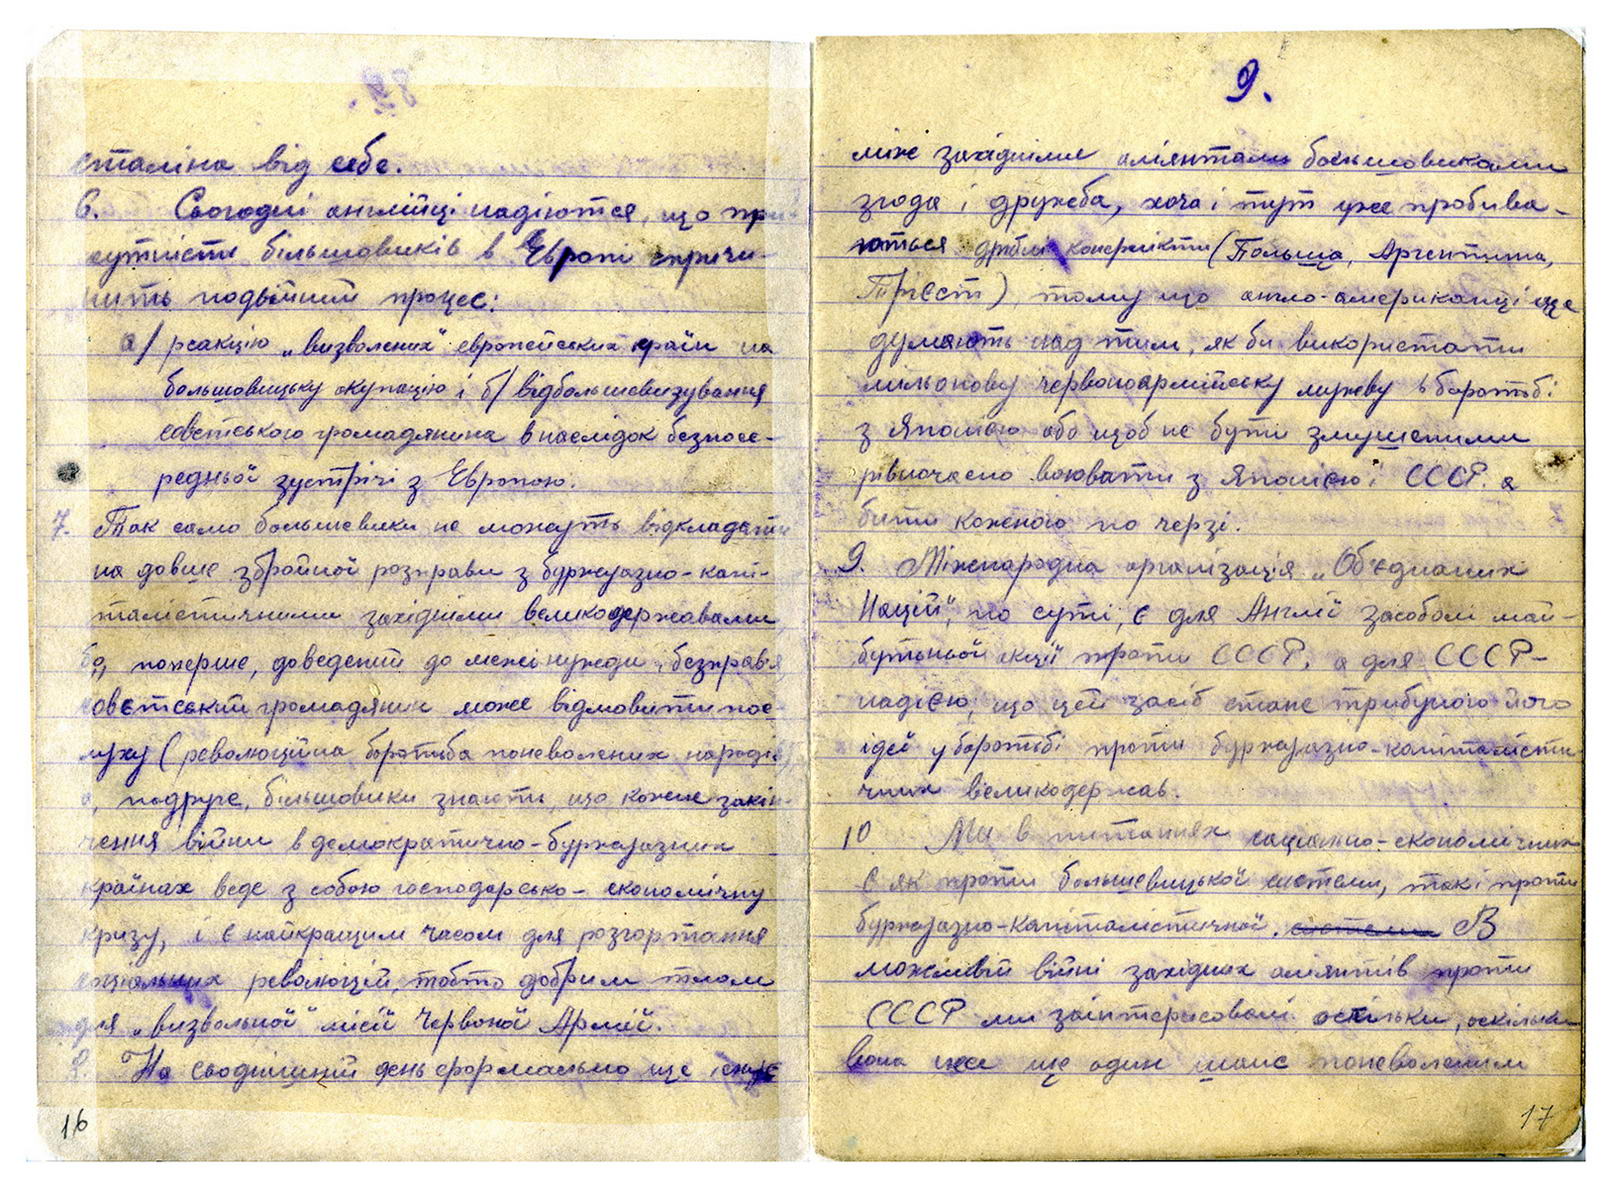 сталіна від себе.
6. Сьогодні англійці надіются, що при-
сутність більшовиків в Европі спричи-
нить подвійний процес:
а/ реакцію „визволених" европейських країн на
большовицьку окупацію і б/ відбольшевизування
совєтського громадянина внаслідок безпосе-
редньої зустрічі з Европою.
7. Так само большевики не можуть відкладати
на довше збройної розправи з буржуазно-капі-
талістичними західніми великодержавами,
бо, поперше, доведений до межі нужди і безправ'я
совєтський громадянин може відмовити пос-
луху (революційна боротьба поневолених народів)
а, подруге, більшовики знають, що кожне закін-
чення війни в демократично-буржуазних
країнах веде з собою господарсько-економічну
кризу, і є найкращим часом для розгортання
соціяльних революцій, тобто добрим тлом
для „визвольної" місії Червоної Армії.
8. На сводніщній день формально ще існує
16
9.
між західніми аліянтами большовиками
згода і дружба, хоча і тут уже пробива-
ються дрібні конфлікти (Польща, Аргентина,
Трієст), тому що англо-американці ще
думають над тим, як би використати
мільонову червоноармійську мужву в боротьбі
з Японією або щоб не бути змушеними
рівночасно воювати з Японією і СССР. а
бити кожного по черзі.
9. Міжнародна організація „Об'єднаних
Націй", по суті, є для Англії засобом май-
бутньої акції проти СССР, а для СССР-
надією, що цей засіб стане трибуною його
ідеї у боротьбі проти буржуазно-капіталісти-
чних великодержав.
10 Ми в питаннях соціяльно-економічних
є як проти большевицької системи, так і проти
буржуазно-капіталістичної. системи В
можливій війні західних аліянтів проти
СССР ми заінтересовані остільки, оскільки
вона ще один шанс поневоленим
17